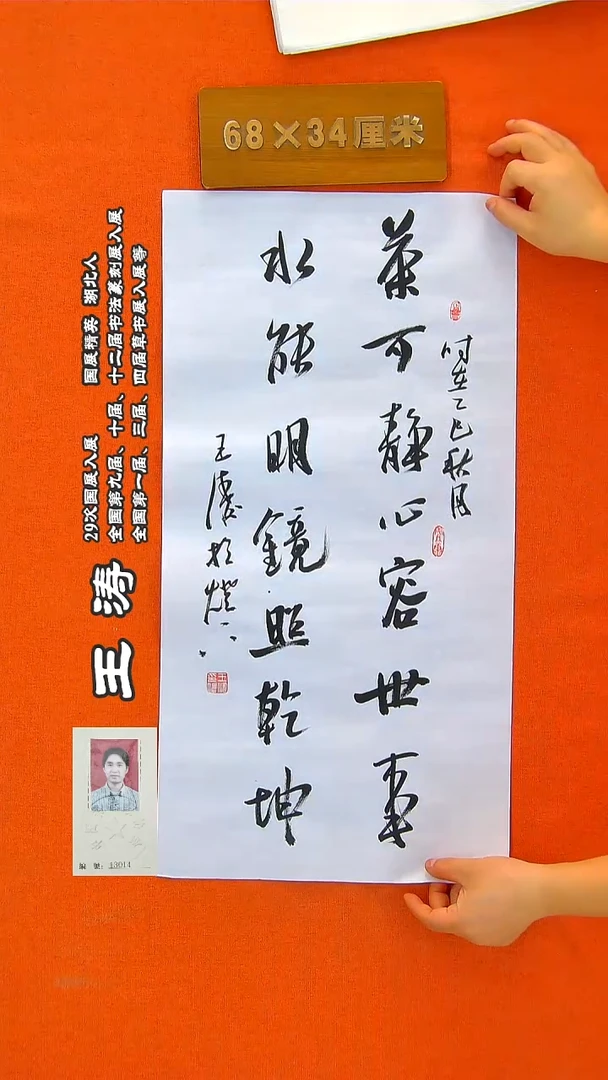 68×34厘米
茶可静心容世事
时在乙巳秋月
水能明镜照乾坤
王涛
王涛
29次国展入展 国展精英 湖北人
全国第九届、十届、十二届书法篆刻展入展
全国第一届、三届、四届草书展入展等
编 号: 13014